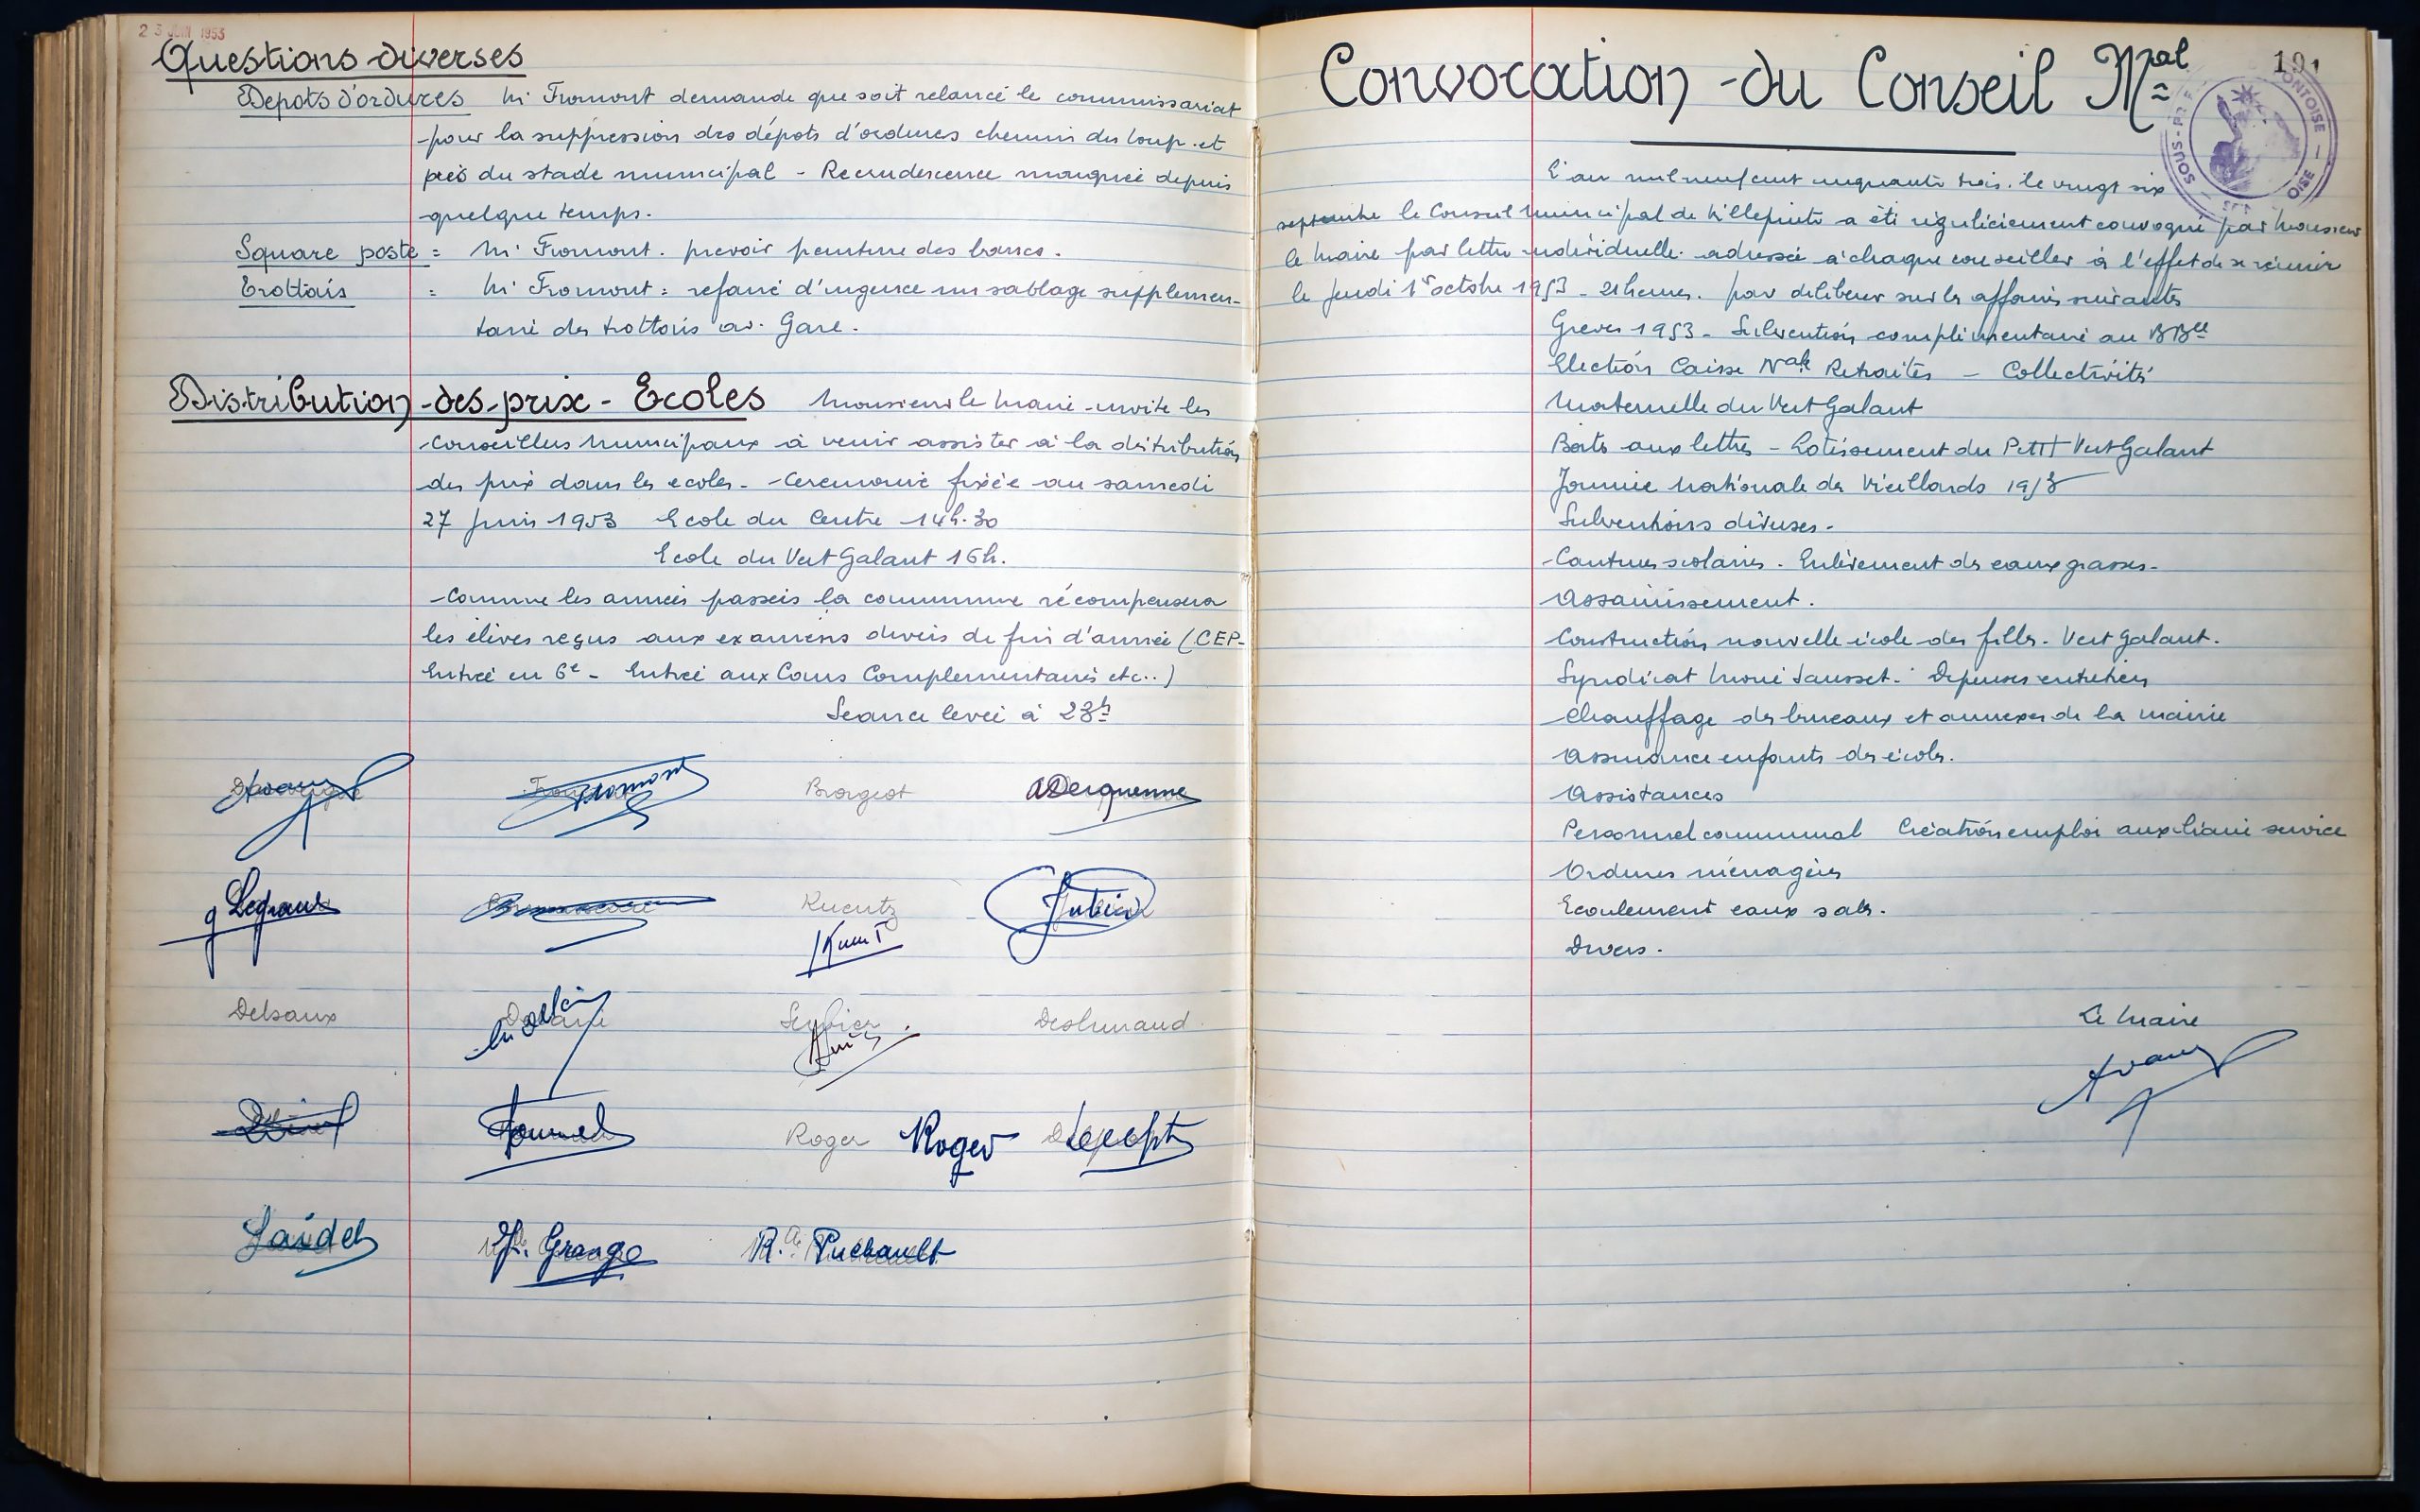 23 JUIN 1953
Questions diverses
Depots d'ordures Mr Fromont demande que soit relancé le commissariat
pour la suppression des dépots d'ordures chemin du loup et
près du stade municipal - Recrudescence marquée depuis
quelque temps.
Square poste = Mr Fromont. prevoir peinture des bancs.
Trottoirs = Mr Fromont = refaire d'urgence un sablage supplemen-
taire des trottoirs av. Gare.
Distribution des prix - Ecoles Monsieur le Maire invite les
Conseillers Municipaux à venir assister à la distribution
des prix dans les ecoles - Ceremonie fixée au samedi
27 Juin 1953 Ecole du Centre 14h.30
Ecole du Vert Galant 16h.
Comme les années passées la commune récompensera
les élèves reçus aux examens divers de fin d'année (CEP-
Entrée en 6e - Entrée aux Cours Complementaires etc..)
Seance levée à 23h
Fromont Brogeot ADerquenne
g Legrand Kuentz
Kuent
Delsaux Deshuraud
Roger Roger
Laidet Grange R. Puchault
Convocation du Conseil Mal
191
SOUS-PREF PONTOISE OISE
L'an mil neuf cent cinquante trois. le vingt six
septembre le Conseil Municipal de Villepinte a été régulièrement convoqué par Monsieur
le Maire par lettre individuelle adressée à chaque conseiller à l'effet de se réunir
le Jeudi 1er octobre 1953 - 21 heures. pour deliberer sur les affaires suivantes
Greves 1953 - Subvention complémentaire au BBce
Election Caisse Nale Retraites - Collectivités
Maternelle du Vert Galant
Boite aux lettres - Lotissement du Petit Vert Galant
Journée Nationale des Vieillards 1953
Subventions diverses -
Cantines scolaires - Enlèvement des eaux grasses -
Assainissement.
Construction nouvelle école des filles - Vert Galant.
Syndicat Morée Sausset - Depenses entretien
Chauffage des bureaux et annexes de la mairie
Assurance enfants des écoles.
Assistances
Personnel communal Création emploi auxiliaire service
Ordures ménagères
Ecoulement eaux sales.
Divers.
Le Maire